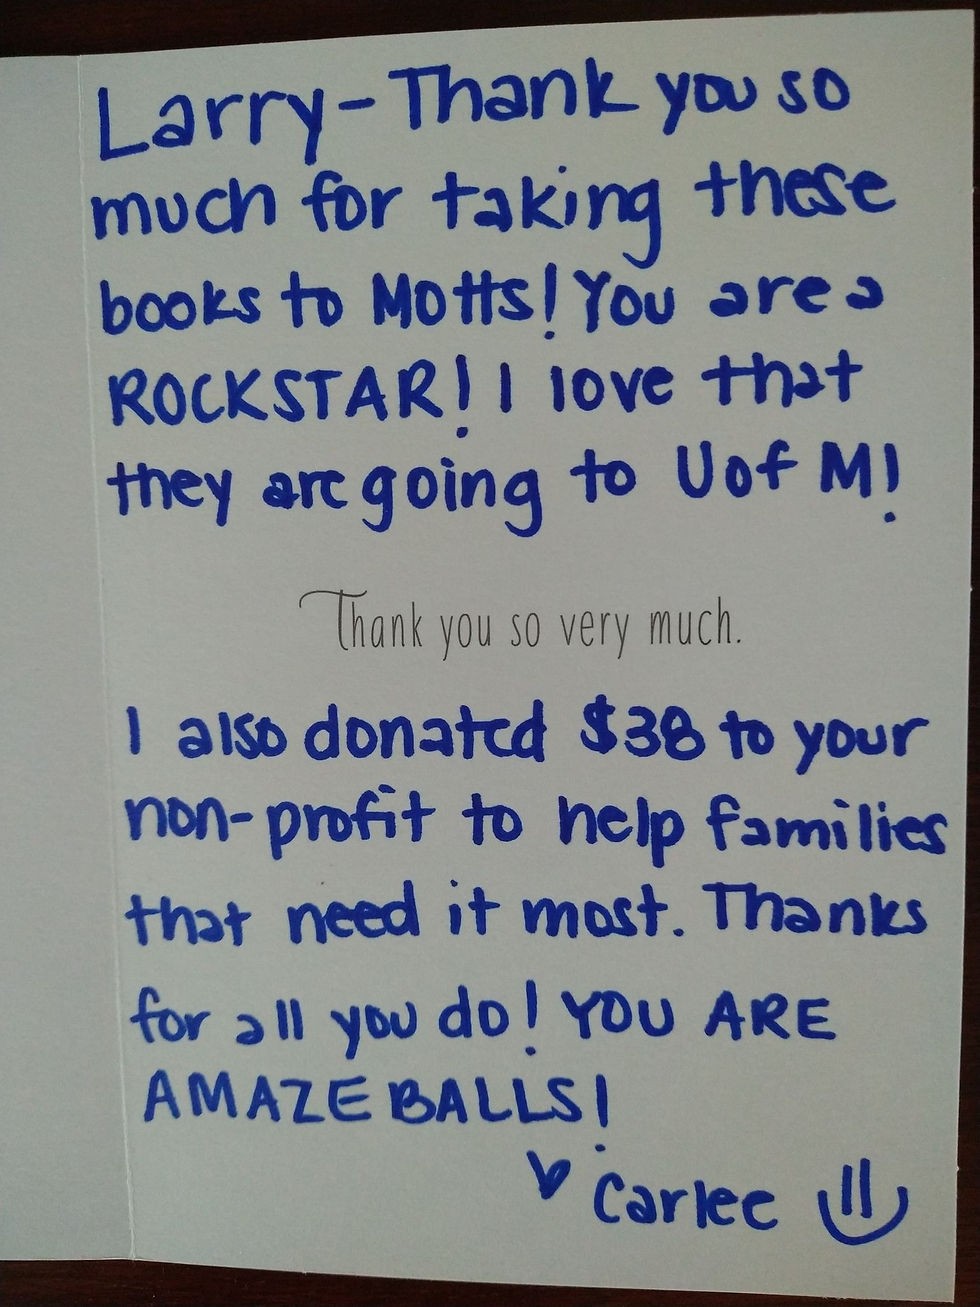 Larry - Thank you so
much for taking these
books to Motts! You are a
ROCKSTAR! I love that
they are going to U of M!
Thank you so very much.
I also donated $38 to your
non-profit to help families
that need it most. Thanks
for all you do! YOU ARE
AMAZEBALLS!
♥ Carlee :)